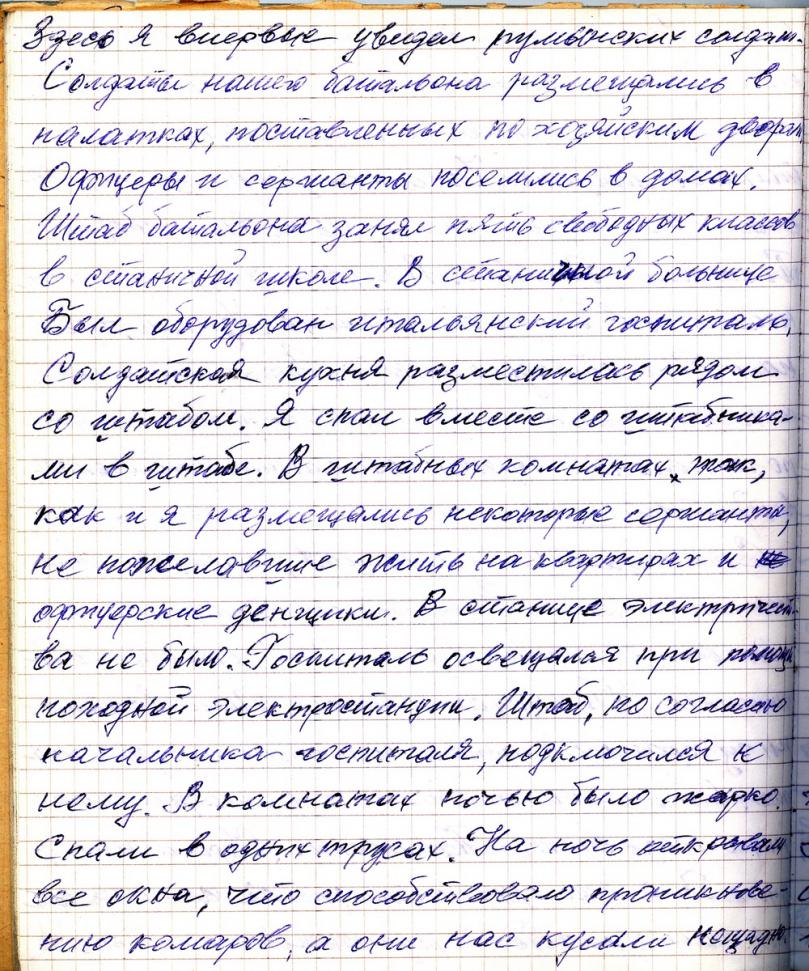 Здесь я впервые увидел румынских солдат.
Солдаты нашего батальона размещались в
палатках, поставленных по хозяйским дворам.
Офицеры и сержанты поселились в домах.
Штаб батальона занял пять свободных классов
в станичной школе. В станичной больнице
Был оборудован итальянский госпиталь.
Солдатская кухня разместилась рядом
со штабом. Я спал вместе со штабника-
ми в штабе. В штабных комнатах, так,
как и я размещались некоторые сержанты,
не пожелавшие жить на квартирах и
офицерские денщики. В станице электричест-
ва не было. Госпиталь освещался при помощи
походной электростанции. Штаб, по согласию
начальника госпиталя, подключился к
нему. В комнатах ночью было жарко.
Спали в одних трусах. На ночь открывали
все окна, что способствовало проникнове-
нию комаров, а они нас кусали нещадно.